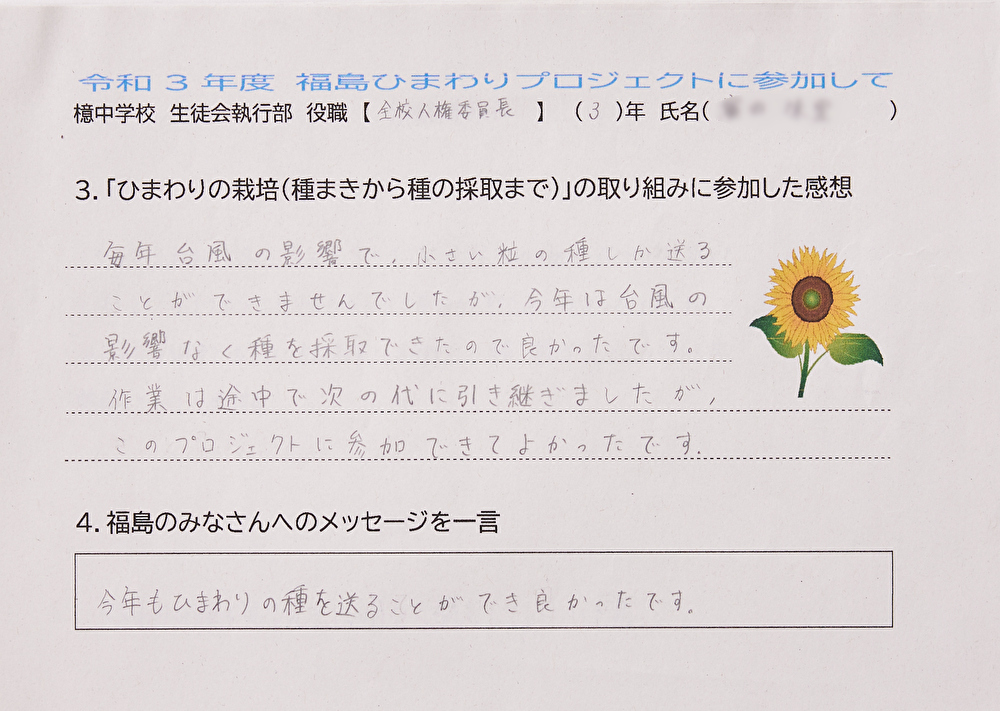 令和3年度 福島ひまわりプロジェクトに参加して
檍中学校 生徒会執行部 役職【全校人権委員長】 (3)年 氏名( )
3.「ひまわりの栽培(種まきから種の採取まで)」の取り組みに参加した感想
毎年台風の影響で、小さい粒の種しか送る
ことができませんでしたが、今年は台風の
影響なく種を採取できたので良かったです。
作業は途中で次の代に引き継ぎましたが、
このプロジェクトに参加できてよかったです。
4.福島のみなさんへのメッセージを一言
今年もひまわりの種を送ることができ良かったです。